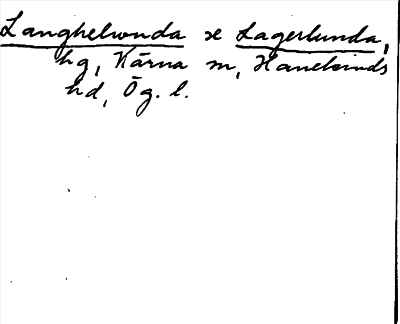 Langhelunda se Lagerlunda,
hg, Kärna sn, Hanekinds
hd, Ög. l.